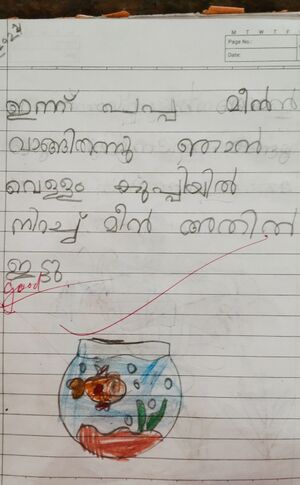 M T W T F
Page No.:
Date:
ഇന്ന് പപ്പ മീൻ
വാങ്ങിതന്നു ഞാൻ
വെള്ളം കുപ്പിയിൽ
നിറച്ച് മീൻ അതിൽ
ഇട്ടു
good